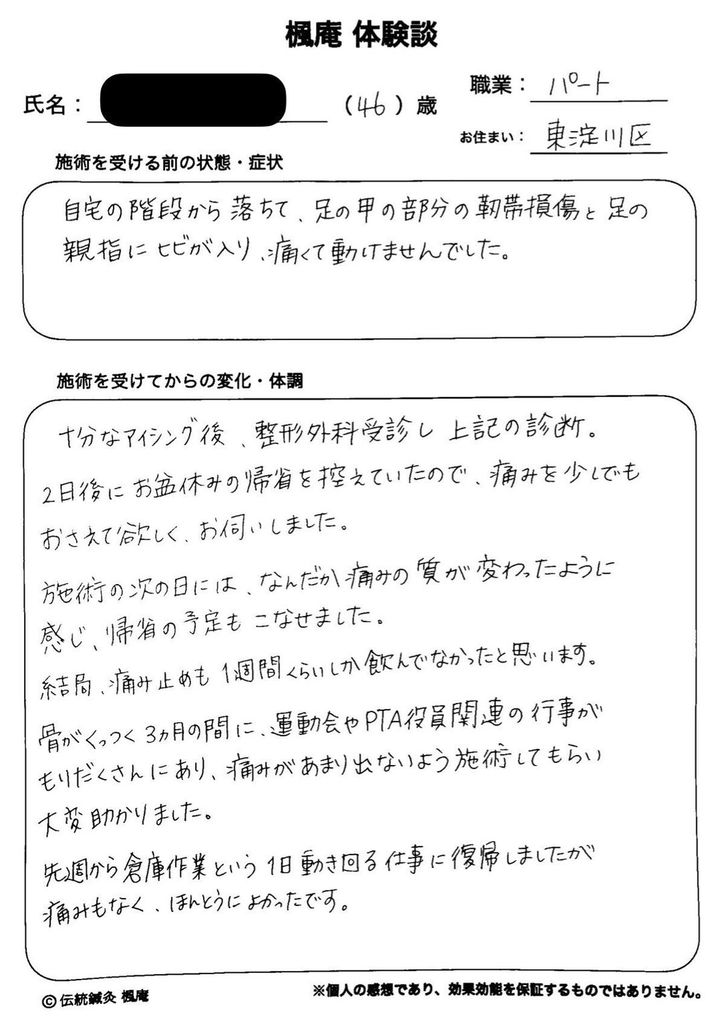 楓庵 体験談
氏名： （46）歳
職業： パート
お住まい： 東淀川区
施術を受ける前の状態・症状
自宅の階段から落ちて、足の甲の部分の靭帯損傷と足の
親指にヒビが入り、痛くて動けませんでした。
施術を受けてからの変化・体調
十分なアイシング後、整形外科受診し上記の診断。
2日後にお盆休みの帰省を控えていたので、痛みを少しでも
おさえて欲しく、お伺いしました。
施術の次の日には、なんだか痛みの質が変わったように
感じ、帰省の予定もこなせました。
結局、痛み止めも1週間くらいしか飲んでなかったと思います。
骨がくっつく3ヵ月の間に、運動会やPTA役員関連の行事が
もりだくさんにあり、痛みがあまり出ないよう施術してもらい
大変助かりました。
先週から倉庫作業という1日動き回る仕事に復帰しましたが
痛みもなく、ほんとうによかったです。
© 伝統鍼灸 楓庵
※個人の感想であり、効果効能を保証するものではありません。